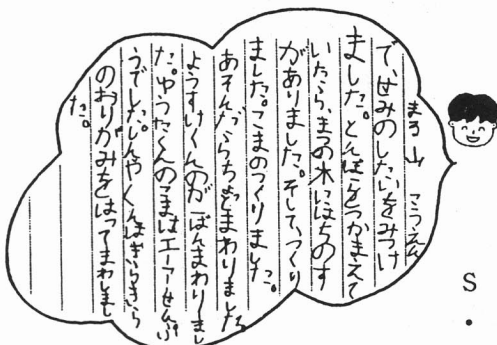 まる山 こうえん
で、せみのしたいをみつけ
ました。とんぼをつかまえて
いたら、まつの木にはちのす
がありました。そして、つくり
ました。こまのつくりました。
あそんだらちょとまわりました
ようすけくんのがばんまわりまし
た。ゆうたくんのこまはエアーせんぷ
うでした。しんやくんはぎらぎら
のおりがみをはってまわしまし
た。
S・